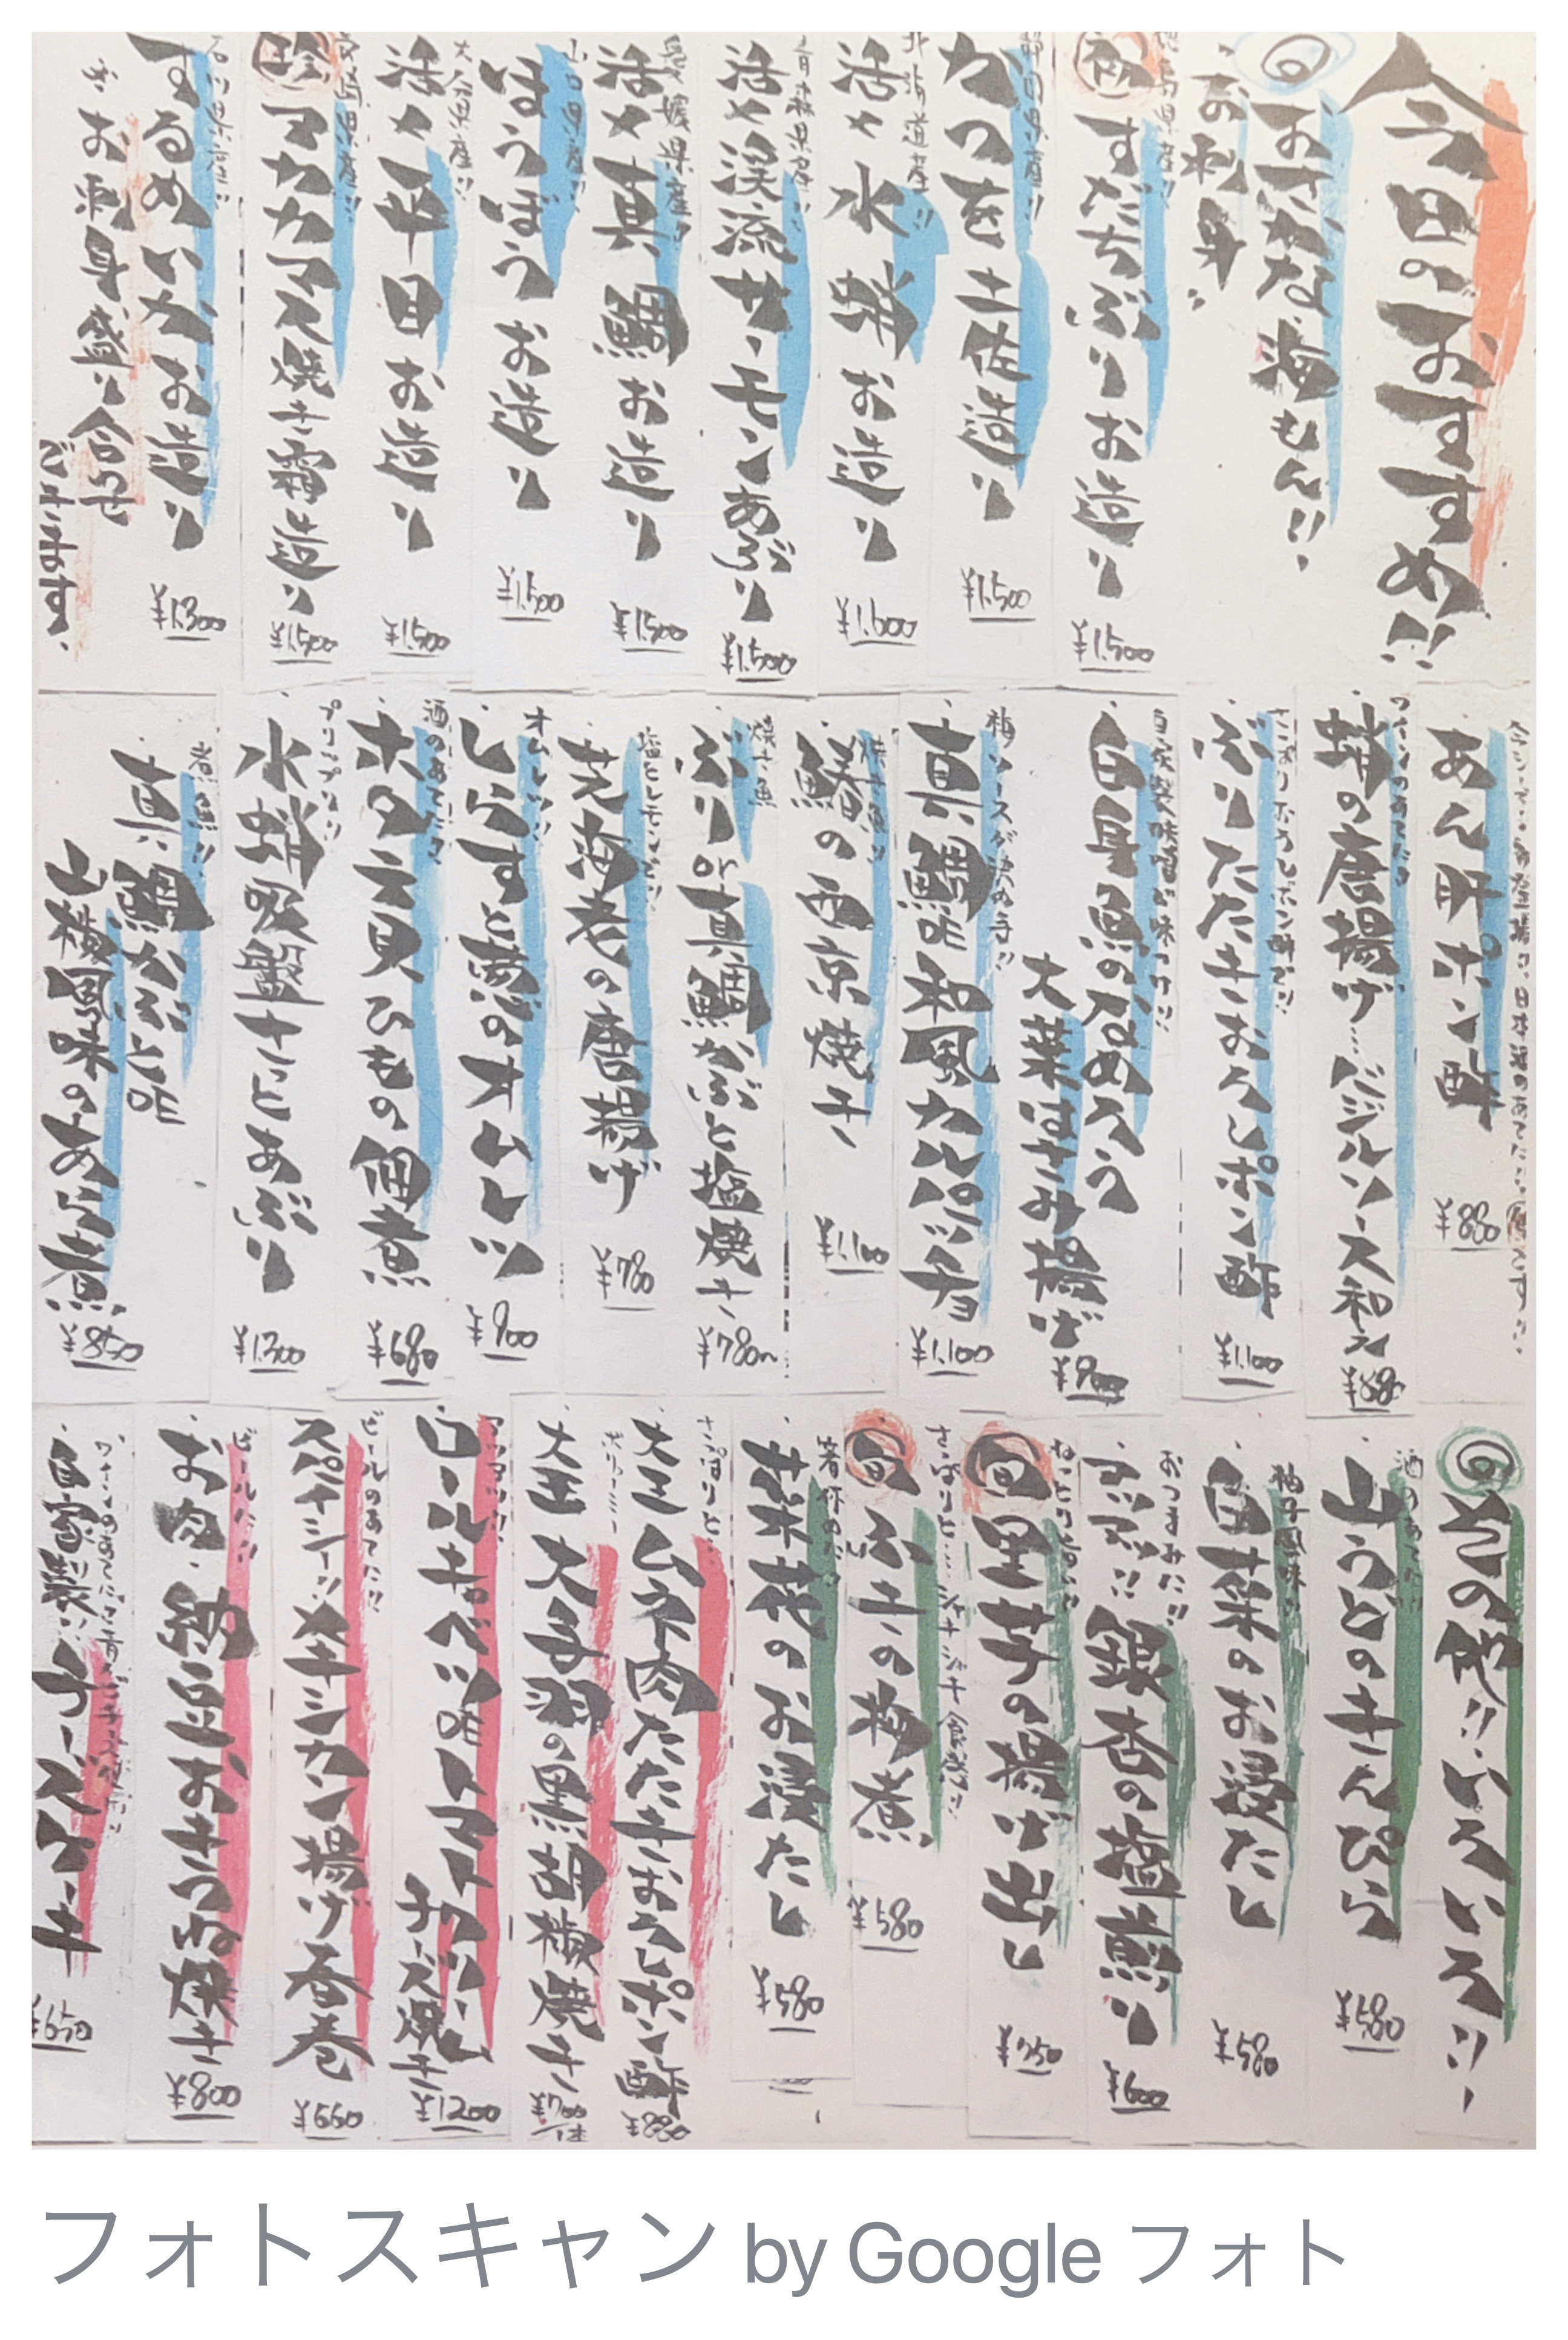 今日のおすすめ!!
おさかな・海もん!!
お刺身
徳島県産!!
すだちぶりお造り
¥1,500
静岡県産!!
かつを土佐造り
¥1,500
北海道産!!
活〆水蛸お造り
青森県産!!
活〆渓流サーモンあぶり
¥1,500
愛媛県産!!
活〆真鯛お造り
¥1,500
山口県産!!
ほうぼうお造り
¥1,500
大分県産!!
活〆平目お造り
¥1,500
珍
マカカマス焼き霜造り
¥1,500
石川県産!!
するめいかお造り
¥1,300
お刺身盛り合せ
ございます。
あん肝ポン酢
¥880
ワインのあてに
蛸の唐揚げ…バジルソース和え
¥880
ぶりたたきおろしポン酢
¥1,100
自家製味噌が味つけ!!
白身魚のなめろう
大葉はさみ揚げ
¥900
梅ソースが決め手!!
真鯛の和風カルパッチョ
¥1,100
焼き魚!!
鰆の西京焼き
¥1,100
焼き魚
ぶりor真鯛かぶと塩焼き
¥780〜
塩とレモンで!!
芝海老の唐揚げ
¥780
オムレツ!!
しらすと葱のオムレツ
¥900
酒のあてに!!
ホタテ貝ひもの佃煮
¥680
プリップリ!!
水蛸吸盤さっとあぶり
¥1,300
煮魚!!
真鯛かぶとの
山椒風味のあら煮
¥850
その他!!いろいろ!!
酒のあてに!!
山うどのきんぴら
¥580
柚子風味!!
白菜のお浸たし
¥580
おつまみに!!
銀杏の塩煎り
¥600
旬
里芋の揚げ出し
¥750
旬
ふきの粉煮
¥580
菜花のお浸たし
¥580
さっぱりと…
大王ムネ肉たたきおろしポン酢
¥880
大王大手羽の黒胡椒焼き
¥700
アツアツ!!
ロールキャベツのトマトクリーム
チーズ焼き
¥1200
ビールのあてに!!
スパイシー!!メキシカン揚げ春巻
¥660
ビールに!!
お肉・納豆おきつね焼き
¥800
自家製!!チーズケーキ
¥650
フォトスキャン by Google フォト